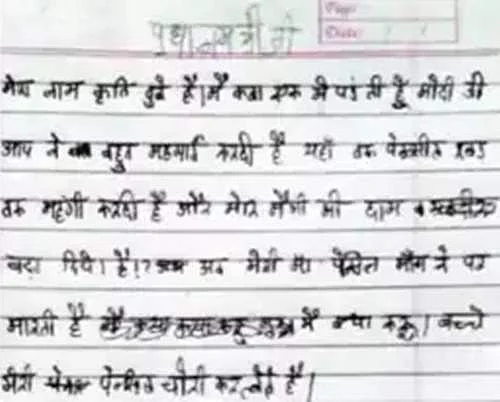 प्रधानमंत्री जी
Page:
Date: / /
मेरा नाम कृति दुबे है। मैं कक्षा एक मे पढ़ती हूँ मोदी जी
आप ने बहुत महगाई करदी है यहाँ तक पेन्सील रबड़
तक महंगी करदी है और मेरि मैगी की दाम
बढ़ा दिये। है।? अब मेरी मां पेंसिल माँग ने पर
मारती है मैं क्या करू। बच्चे
मेरी पेन्सिल चोरी कर लेते है।